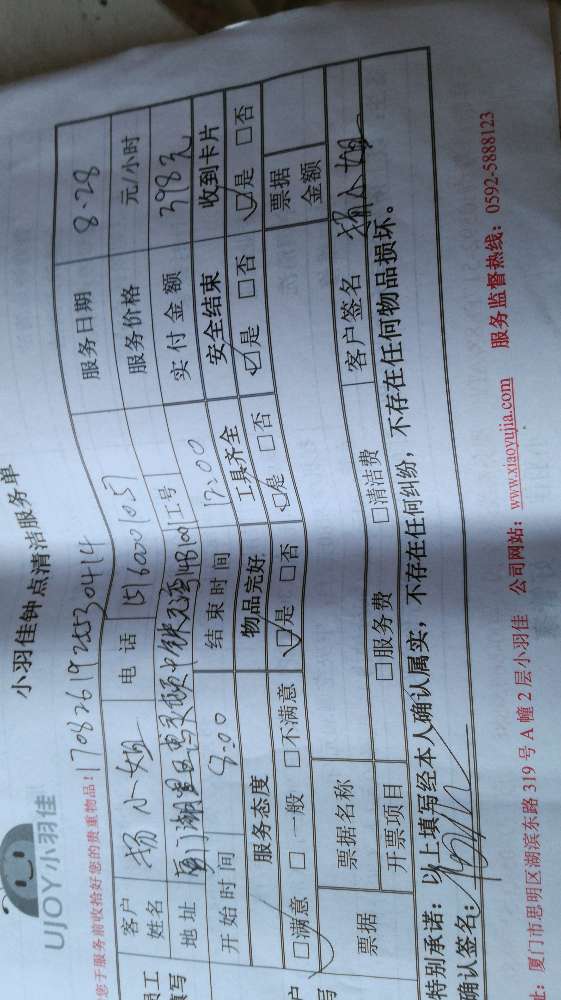 UJOY小羽佳
小羽佳钟点清洁服务单
您于服务前收拾好您的贵重物品！170826192530414
客户姓名 杨小姐 电话 15160001057 服务日期 8.28
地址 工号 服务价格 元/小时
开始时间 8:00 结束时间 12:00 实付金额 398元
服务态度 物品完好 工具齐全 安全结束 收到卡片
□满意 □一般 □不满意 □是 □否 □是 □否 □是 □否 □是 □否
票据 票据名称 票据金额
开票项目 □服务费 □清洁费 客户签名 杨小姐
特别承诺：以上填写经本人确认属实，不存在任何纠纷，不存在任何物品损坏。
确认签名：
址：厦门市思明区湖滨东路 319 号 A 幢 2 层小羽佳 公司网站：www.xiaoyujia.com 服务监督热线：0592-5888123